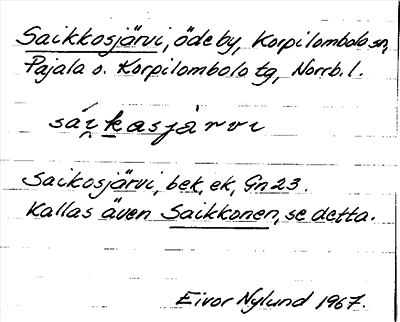 Saikkosjärvi, ödeby, Korpilombolo sn,
Pajala o. Korpilombolo tg, Norrb. l.
sái̯kasjárvi
Saikosjärvi, bek, ek, Gn 23.
Kallas även Saikkonen, se detta.
Eivor Nylund 1967.